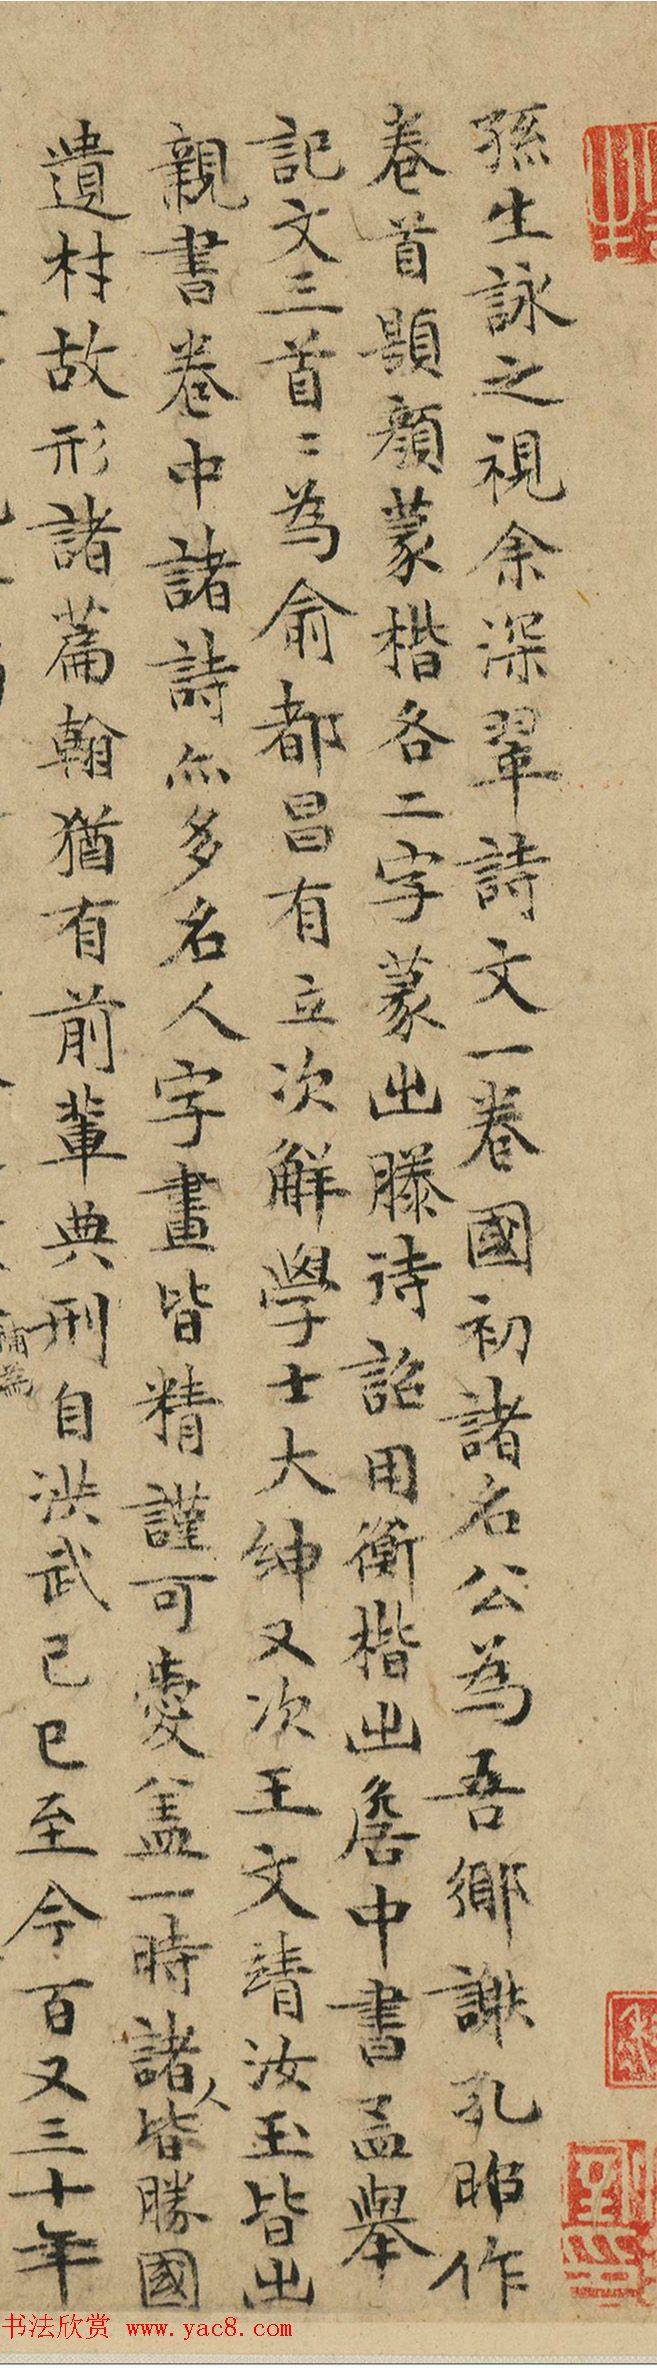 孫生詠之視余深翠詩文一卷國初諸名公為吾鄉謝孔昭作
卷首顯顏蒙楷各二字蒙出滕待詔用衡楷出詹中書孟舉
記文三首〻為俞都昌有立次解學士大紳又次王文靖汝玉皆出
親書卷中諸詩亦多名人字畫皆精謹可愛蓋一時諸人皆勝國
遺材故形諸篇翰猶有前輩典刑自洪武己巳至今百又三十年
書法欣賞 www.yac8.com